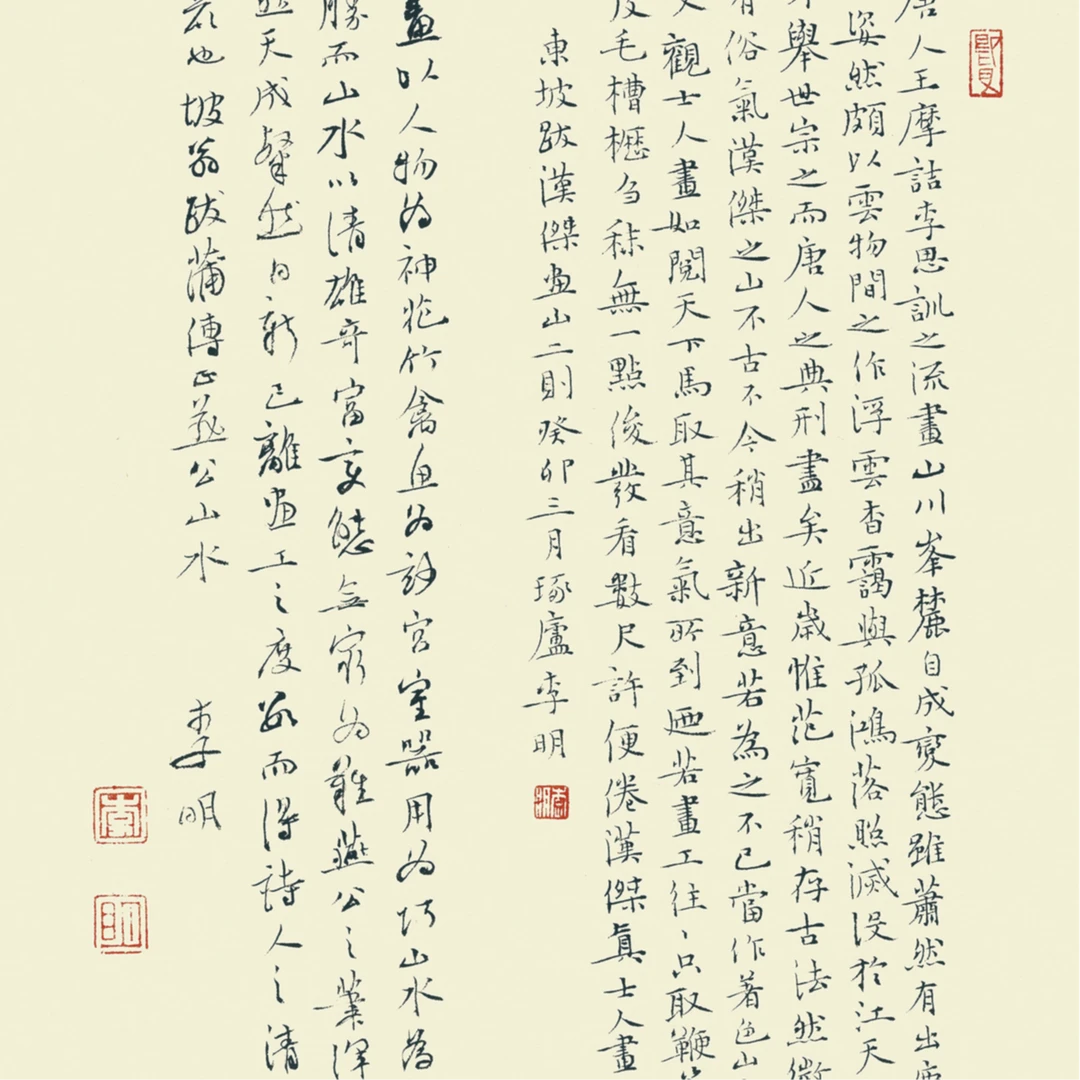 唐人王摩詰李思訓之流畫山川峯麓自成變態雖蕭然有出
姿然頗以雲物間之作浮雲杳靄與孤鴻落照滅没於江天
舉世宗之而唐人之典刑盡矣近歲惟范寬稍存古法然微
有俗氣漢傑之山不古不今稍出新意若為之不已當作著色山
觀士人畫如閱天下馬取其意氣所到廼若畫工往往只取鞭
皮毛槽櫪芻秣無一點俊發看數尺許便倦漢傑真士人畫
東坡跋漢傑畫山二則癸卯三月琢廬李明
畫以人物為神花竹禽魚為妙宮室器用為巧山水為
勝而山水以清雄奇富變態無窮為難燕公之筆渾
然天成粲然日新已離畫工之度數而得詩人之清
麗也坡翁跋蒲傳正燕公山水
李明